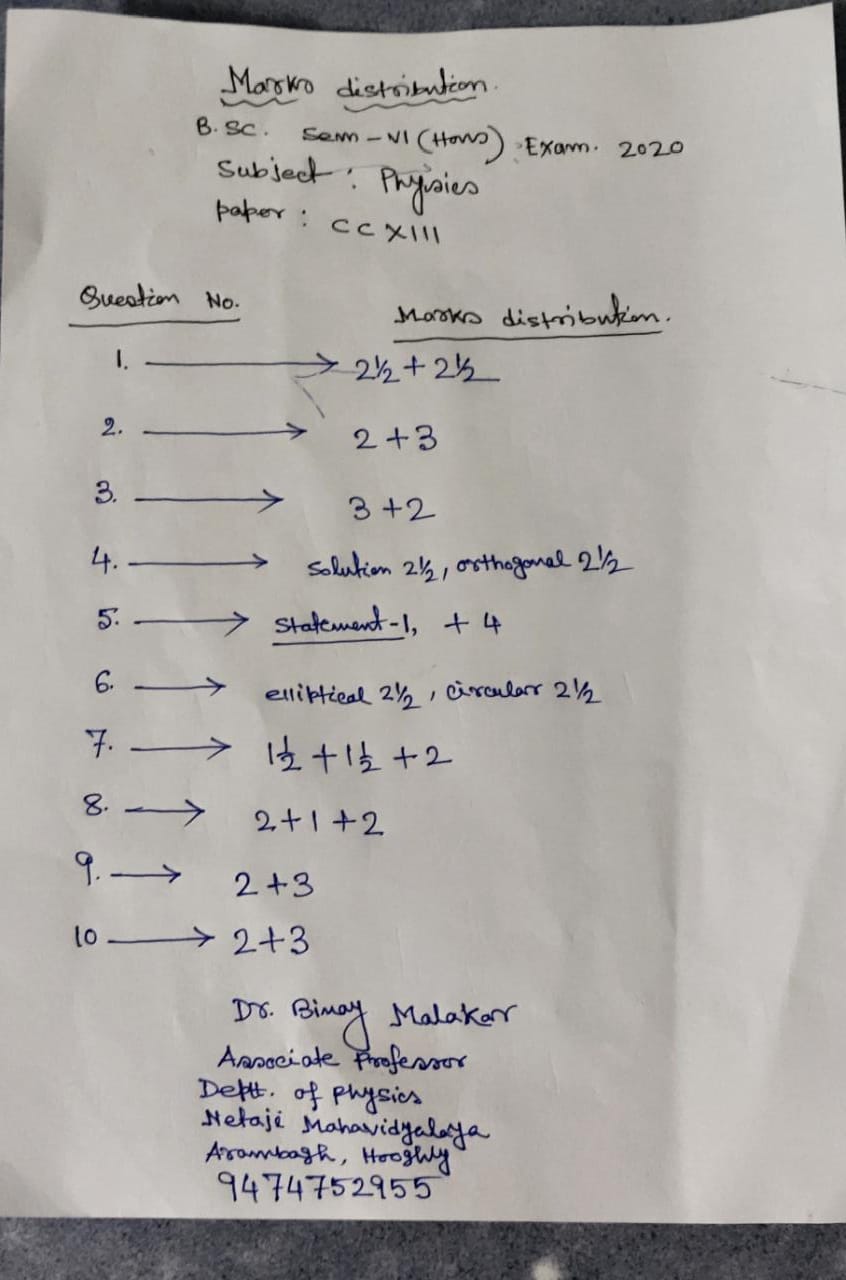 Marks distribution.
B.Sc. Sem-VI (Hons) Exam. 2020
Subject : Physics
paper : CC XIII
Question No. Marks distribution.
1. → 2½ + 2½
2. → 2+3
3. → 3+2
4. → Solution 2½, orthogonal 2½
5. → Statement-1, + 4
6. → elliptical 2½, circular 2½
7. → 1½ + 1½ + 2
8. → 2+1+2
9. → 2+3
10 → 2+3
Dr. Binay Malakar
Associate Professor
Deptt. of physics
Netaji Mahavidyalaya
Arambagh, Hooghly
9474752955